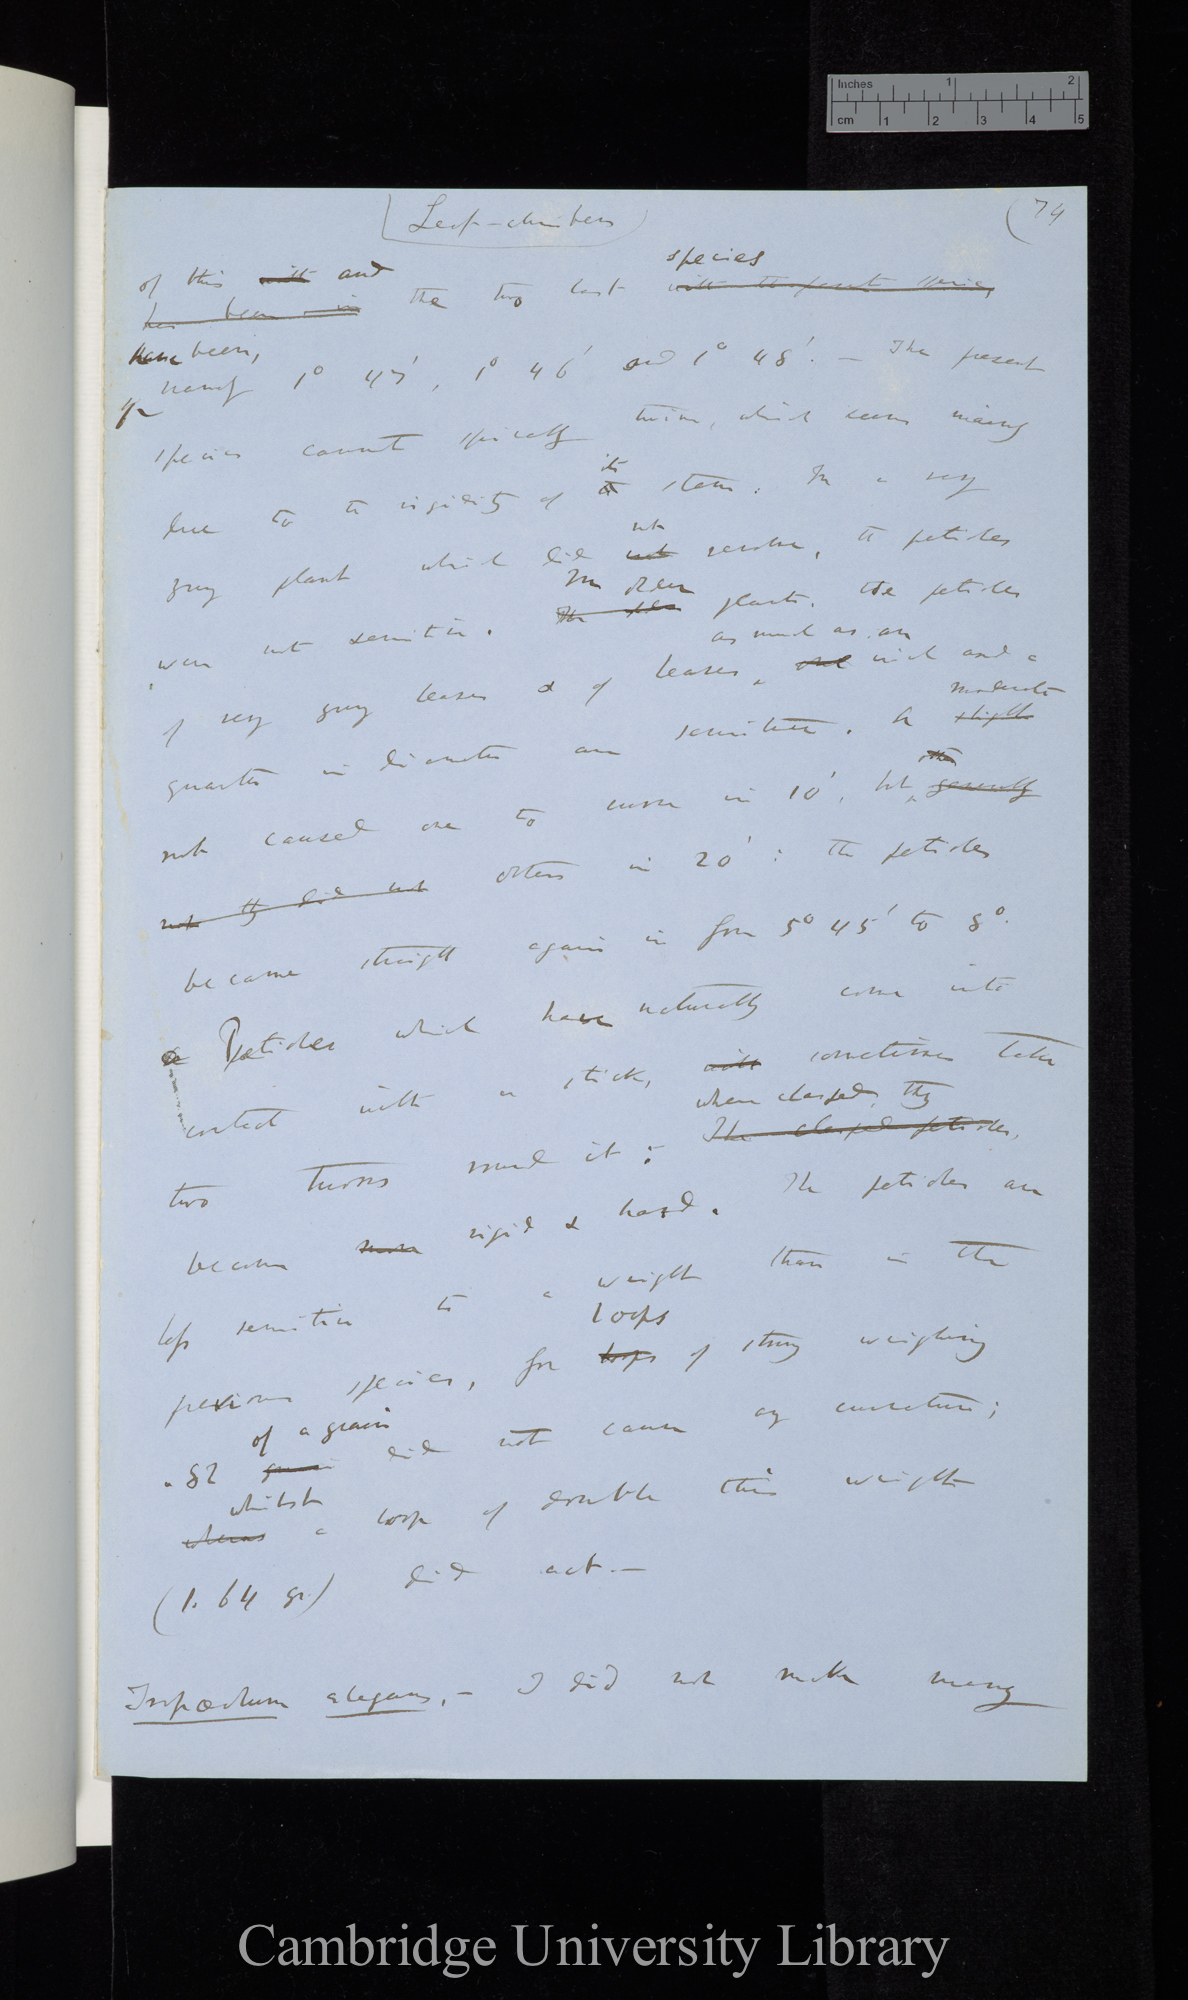 Inches 1 2
cm 1 2 3 4 5
Leaf-climbers
(74
species
of this with and the two last
has been in
have been,
namely 1° 47', 1° 46' and 1° 48'. — The present
species cannot spirally twine, which seems mainly
its
due to the rigidity of the stem. In a very
not
young plant which did not revolve, the petioles
In older
were not sensitive. plants, the petioles
as much as an
of very young leaves & of leaves, one inch and a
moderate
quarter in diameter are sensitive. A slight
rub caused one to curve in 10', but generally
not they did not others in 20': the petioles
became straight again in from 5° 45' to 8°.
Petioles which have naturally come into
contact with a stick, will sometimes take
when clasped, they
two turns round it: The clasped petioles,
became more rigid & hard. The petioles are
less sensitive to a weight than in the
loops
previous species, for loops of string weighing
of a grain
.82 grain did not cause any curvature;
whilst
whereas a loop of double this weight
(1.64 gr.) did act. —
Tropæolum elegans. — I did not make many
Cambridge University Library